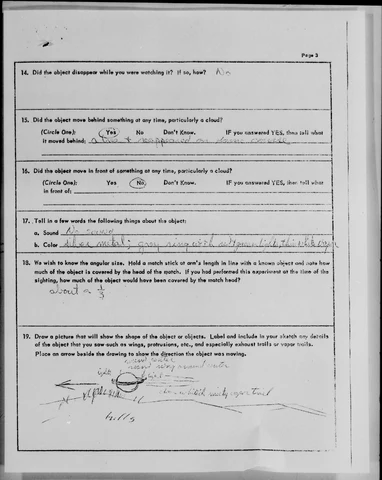 Page 3
14. Did the object disappear while you were watching it? If so, how? No
15. Did the object move behind something at any time, particularly a cloud?
(Circle One): Yes No Don't Know. IF you answered YES, then tell what
it moved behind: a tree & reappeared on
16. Did the object move in front of something at any time, particularly a cloud?
(Circle One): Yes No Don't Know. IF you answered YES, then tell what
in front of:
17. Tell in a few words the following things about the object:
a. Sound No sound
b. Color silver metal; gray ring with
18. We wish to know the angular size. Hold a match stick at arm's length in line with a known object and note how
much of the object is covered by the head of the match. If you had performed this experiment at the time of the
sighting, how much of the object would have been covered by the match head?
about a 1/3
19. Draw a picture that will show the shape of the object or objects. Label and include in your sketch any details
of the object that you saw such as wings, protrusions, etc., and especially exhaust trails or vapor trails.
Place an arrow beside the drawing to show the direction the object was moving.
ring around center
light
hills